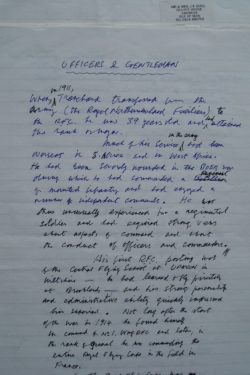 OFFICERS & GENTLEMAN
in 1911,
When Trenchard transferred from the
Army (the Royal Northumberland Fusiliers) to
the RFC he was 39 years old and had attained
the rank of major.
in the army
Most of his service had been
overseas in S. Africa and in West Africa.
He had been severely wounded in the BOER war
during which he had commanded a
of mounted infantry and had engaged in a
number of independent commands. He was
thus unusually experienced for a regimental
soldier and had acquired strong views
about aspects of command and about
the conduct of officers and commanders.
His first RFC posting was
to the Central Flying School at UPAVON in
Wiltshire — he had learned to fly privately
at Brooklands — and his strong personality
and administrative ability quickly impressed
his superiors. Not long after the start
of the war in 1914 he found himself
in command of No 1 Wing RFC and later, in
the rank of General he was commanding the
entire Royal Flying Corps in the field in
France.